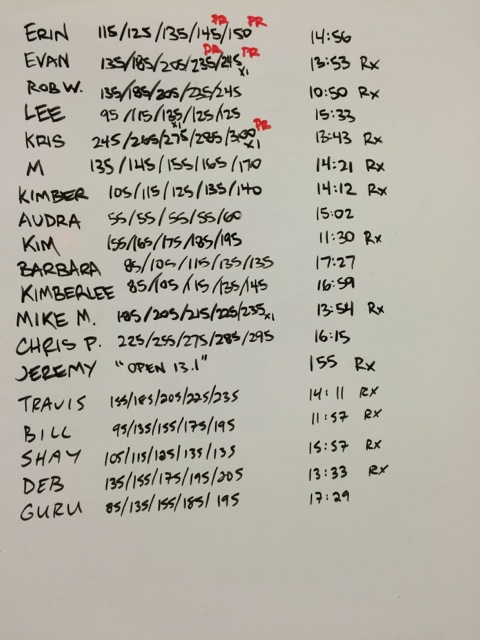 ERIN 115/125/135/145/150 PR PR 14:56
EVAN 135/185/205/235/245 x1 PR PR 13:53 Rx
ROB W. 135/185/205/225/245 10:50 Rx
LEE 95/115/135/125/125 x1 15:33
KRIS 245/265/275/285/300 x1 PR 13:43 Rx
M 135/145/155/165/170 14:21 Rx
KIMBER 105/115/125/135/140 14:12 Rx
AUDRA 55/55/55/55/60 15:02
KIM 155/165/175/185/195 11:30 Rx
BARBARA 85/105/115/135/135 17:27
KIMBERLEE 85/105/115/135/145 16:59
MIKE M. 185/205/215/225/235 x1 13:54 Rx
CHRIS P. 225/255/275/285/295 16:15
JEREMY "OPEN 13.1" 155 Rx
TRAVIS 155/185/205/225/235 14:11 Rx
BILL 95/135/155/175/195 11:57 Rx
SHAY 105/115/125/135/135 15:57 Rx
DEB 135/155/175/195/205 13:33 Rx
GURU 85/135/155/185/195 17:29